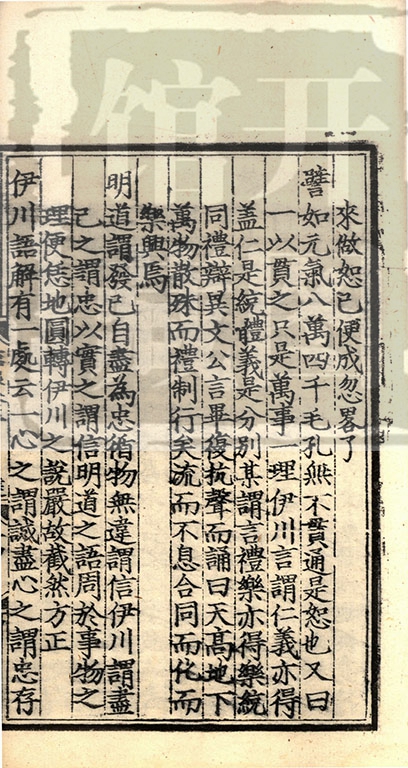 來做恕已便成忽畧了
譬如元氣八萬四千毛孔無不貫通是恕也又曰
一以貫之只是萬事一理伊川言謂仁義亦得
盖仁是統體義是分別某謂言禮樂亦得樂統
同禮辯異文公言畢復抗聲而誦曰天髙地下
萬物散殊而禮制行矣流而不息合同而化而
樂興焉
明道謂發已自盡為忠循物無違謂信伊川謂盡
己之謂忠以實之謂信明道之語周於事物之
理便恁地圓轉伊川之說嚴故截然方正
伊川語解有一處云一心之謂誠盡心之謂忠存